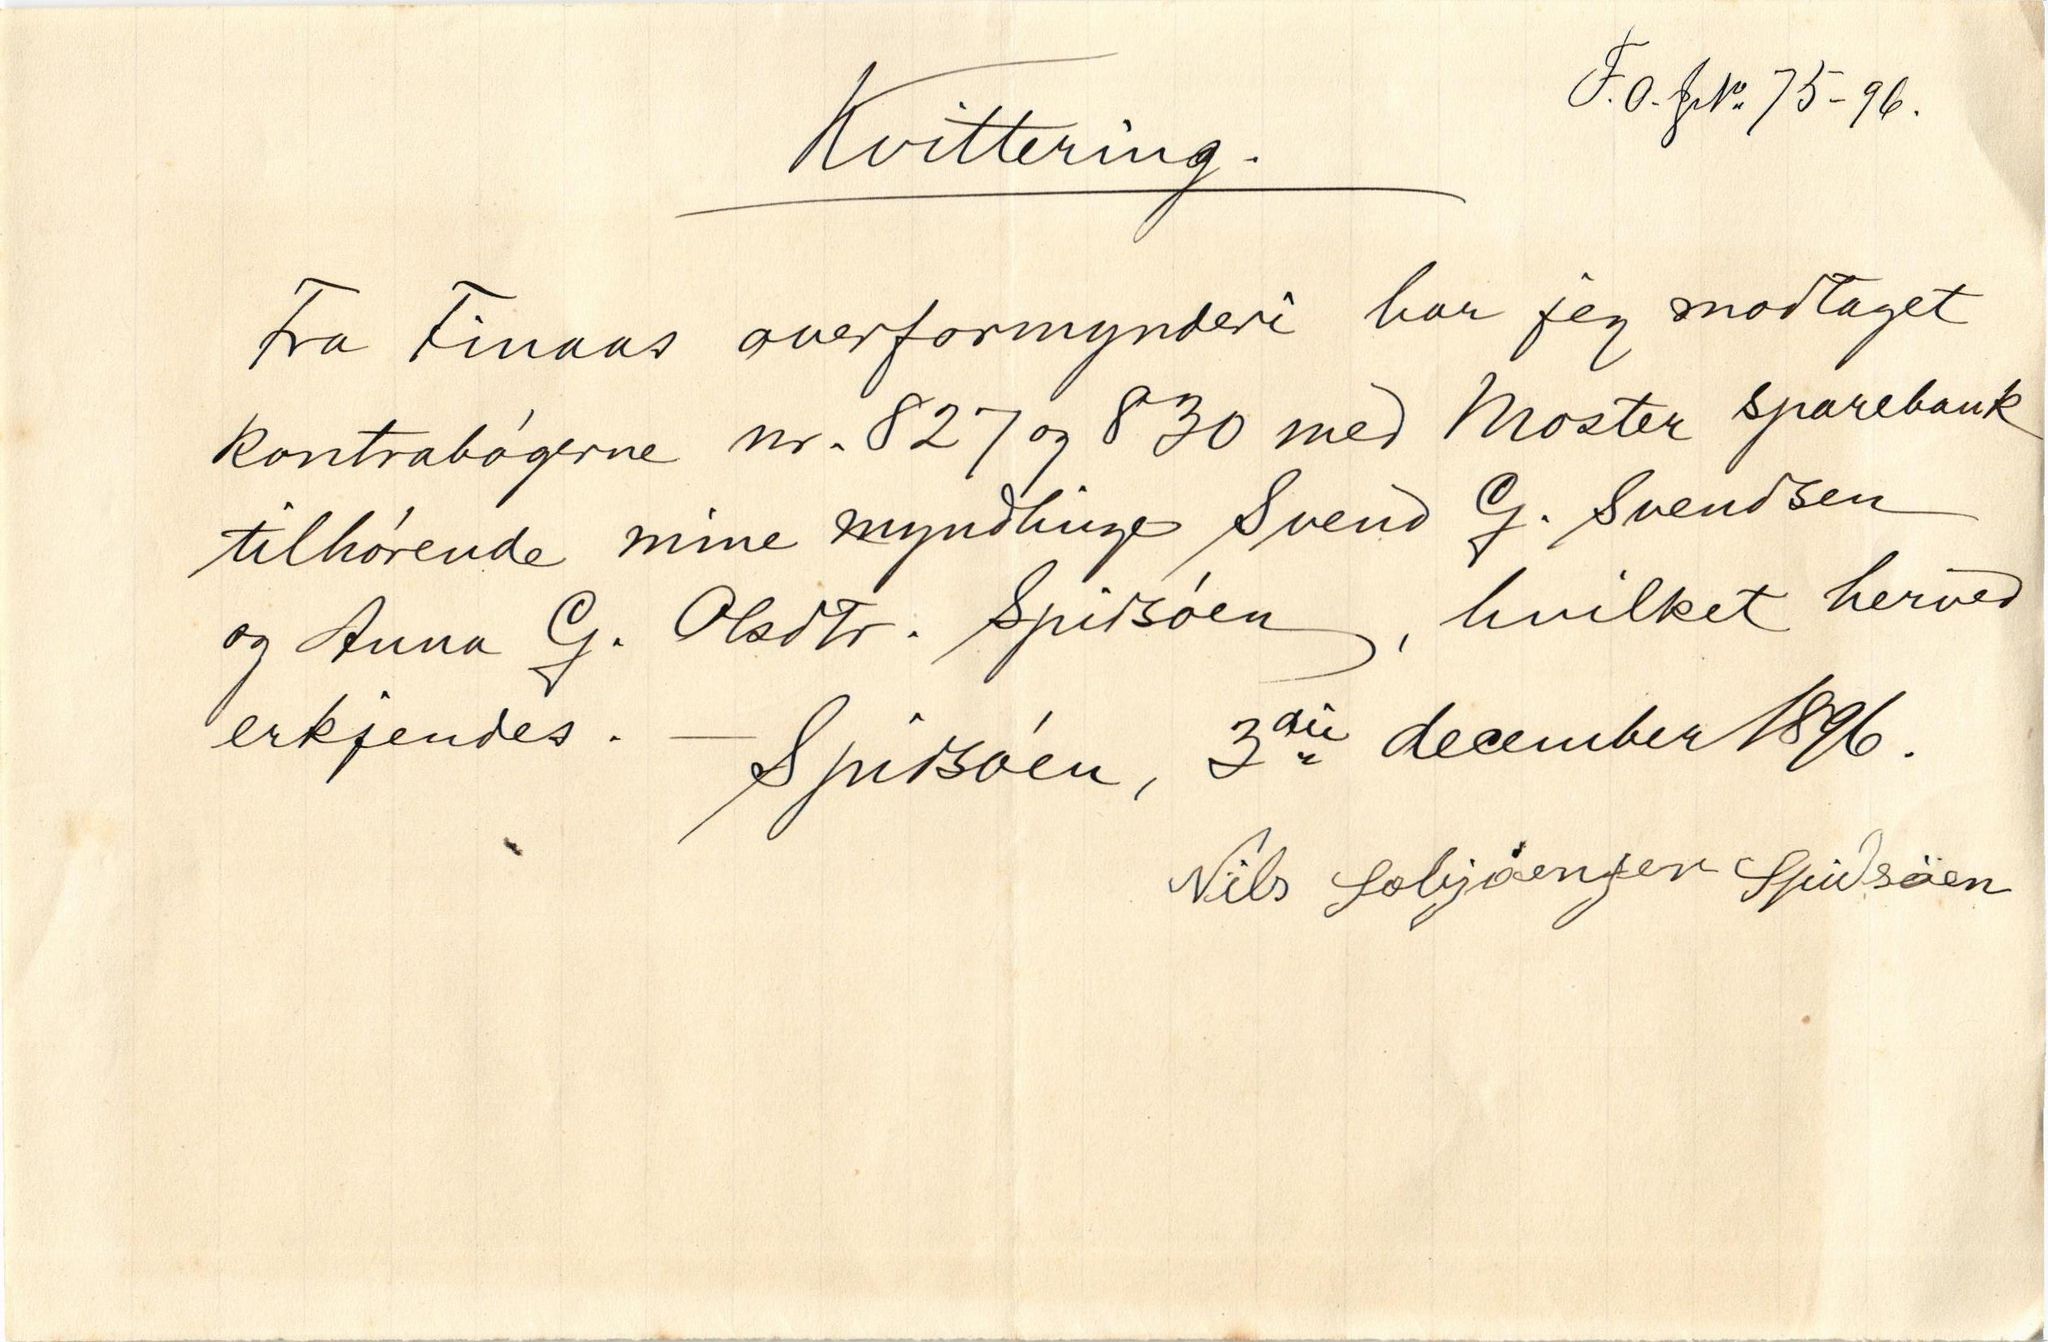 F.O. JNo. 75-96.
Kvittering.
Fra Finaas overformynderi har jeg modtaget
kontrabógerne nr. 827 og 830 med Moster sparebank
tilhórende mine myndlinge Svend G. Svendsen
og Anna G. Olsdtr. Spidsóen, hvilket herved
erkjendes. — Spidsóen, 3die december 1896.
Nils Spidsöen